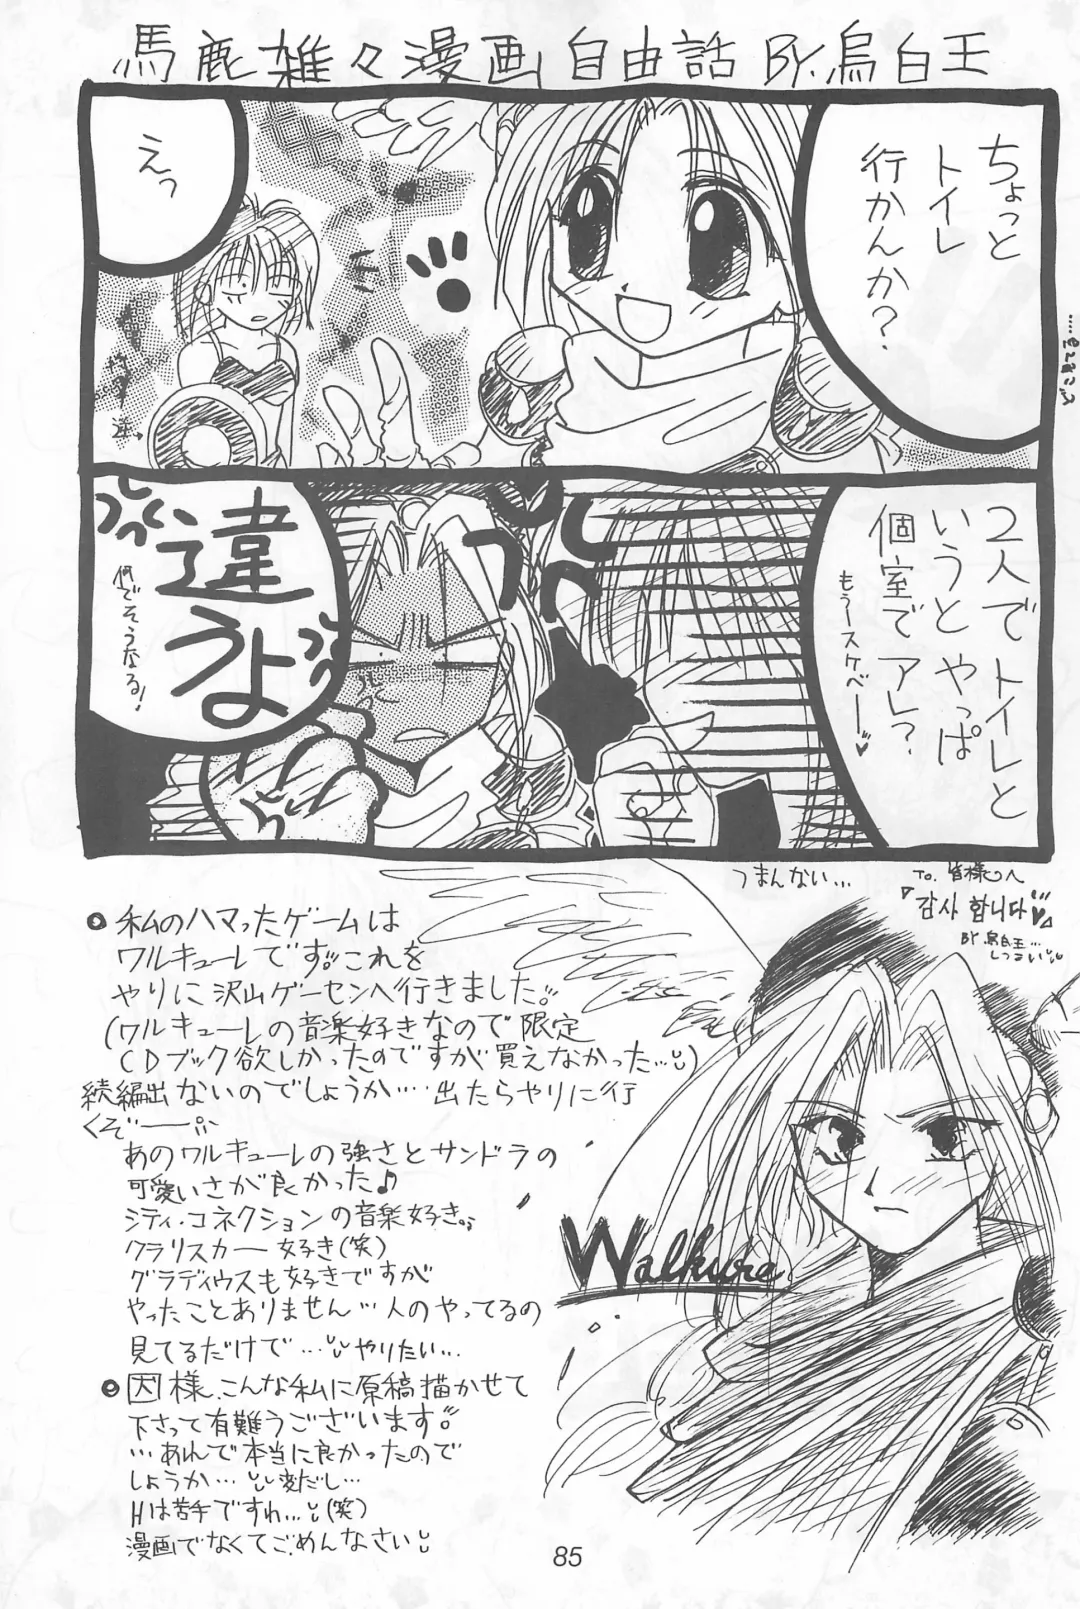 馬鹿雑々漫画 自由話 BY.烏白王
ちょっと
トイレ
行かんか?
えっ
2人でトイレと
いうとやっぱ
個室でアレ?
もうースケベー♥
違うよ
何でそうなる!
つまんない…
To. 皆様へ
『감사 합니다♥』
BY.烏白王…
しつこい
●私のハマったゲームは
ワルキューレです。これを
やりに沢山ゲーセンへ行きました。
(ワルキューレの音楽好きなので限定
CDブック欲しかったのですが買えなかった…)
続編出ないのでしょうか…出たらやりに行
くぞー
あのワルキューレの強さとサンドラの
可愛いさが良かった♪
シティ・コネクションの音楽好き。
クラリスカー好き(笑)
グラディウスも好きですが
やったことありません…人のやってるの
見てるだけで…やりたい…
Walkure.
●因様、こんな私に原稿描かせて
下さって有難うございます。
…あんで本当に良かったので
しょうか…変だし…
Hは苦手ですわ…(笑)
漫画でなくてごめんなさい
85